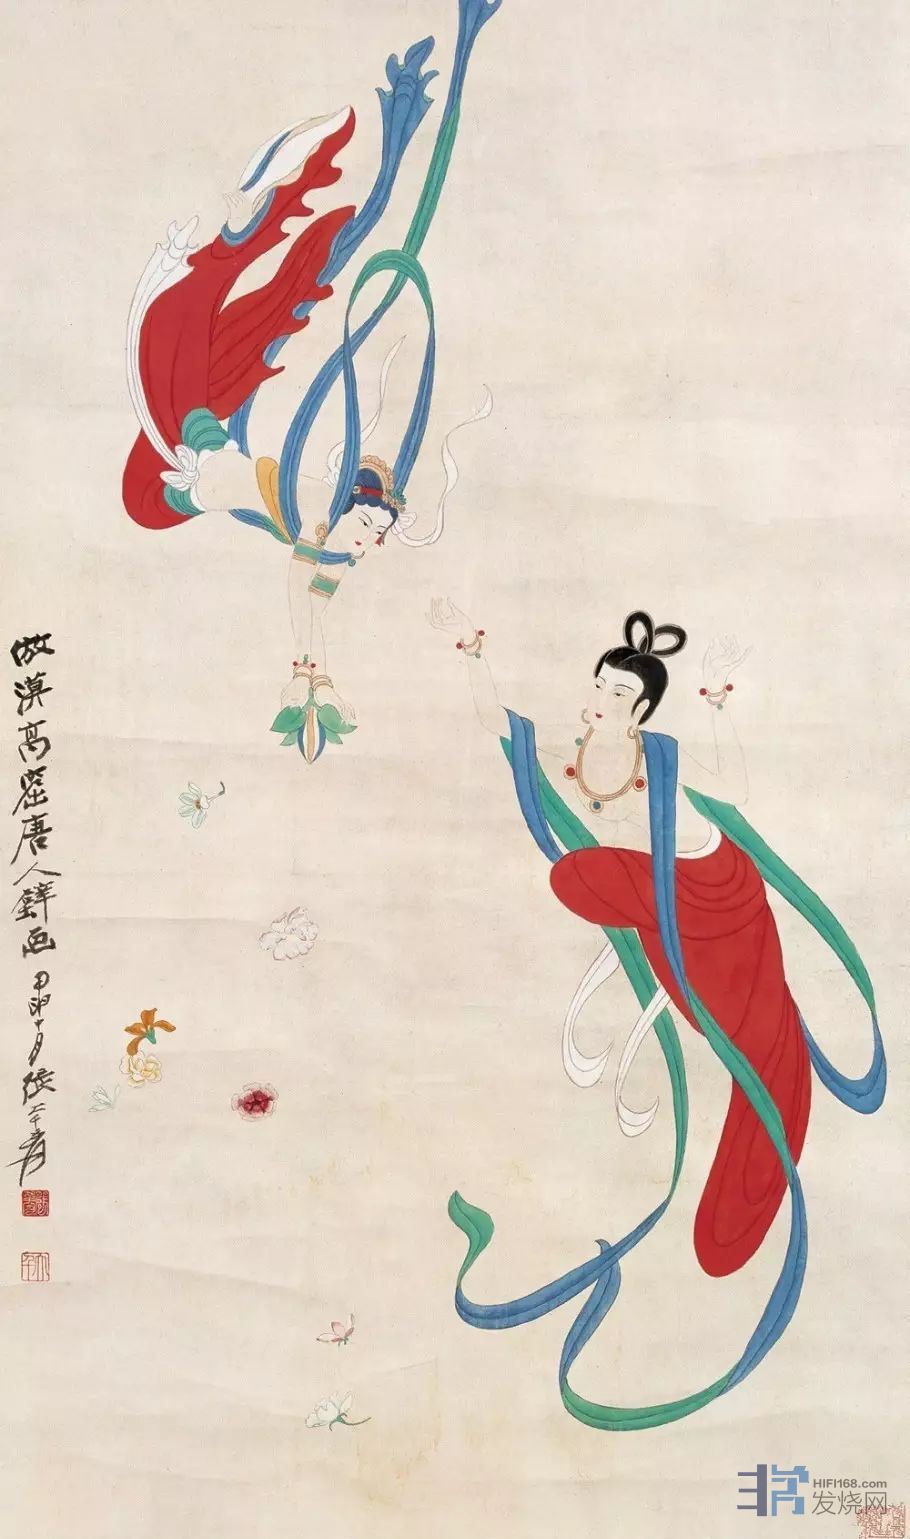 倣漠高窟唐人壁画甲申十月張大千爰
大千
HIFI168.com
发烧网